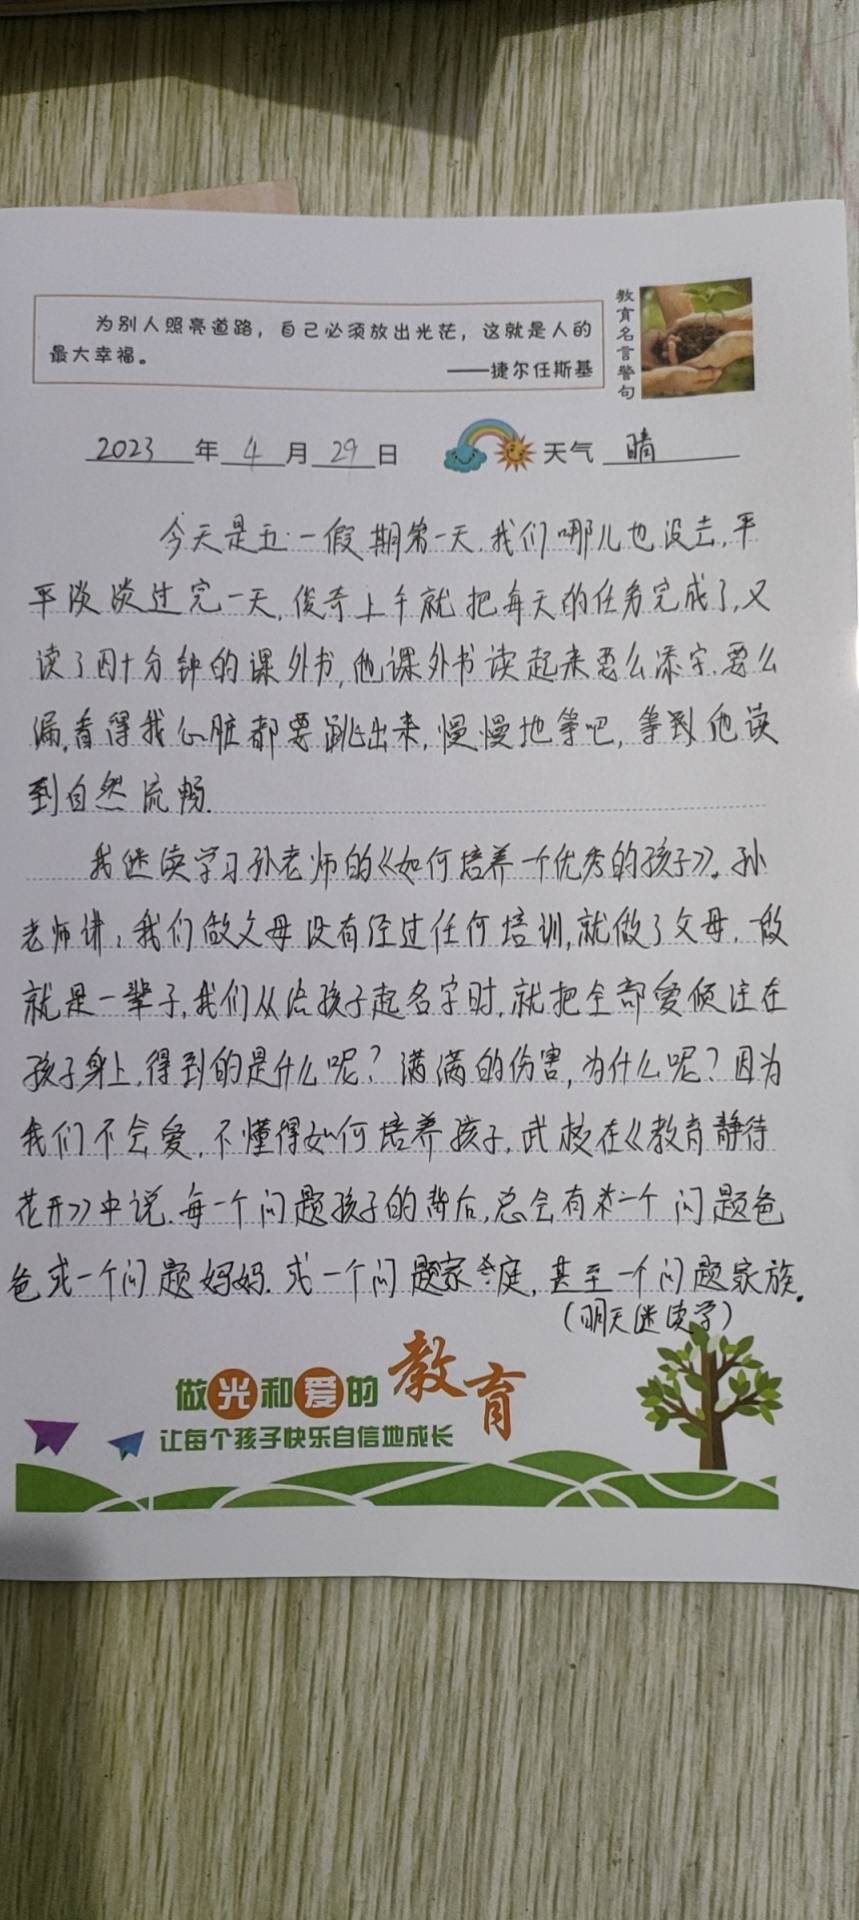 为别人照亮道路，自己必须放出光茫，这就是人的
最大幸福。
——捷尔任斯基
教育名言警句
2023年4月29日 天气 晴
今天是五·一假期第一天,我们哪儿也没去,平
平淡淡过完一天,俊奇上午就把每天的任务完成了,又
读了四十分钟的课外书,他课外书读起来要么添字,要么
漏,看得我心脏都要跳出来,慢慢地等吧,等到他读
到自然流畅.
我继续学习孙老师的《如何培养一个优秀的孩子》。孙
老师讲:我们做父母没有经过任何培训,就做了父母,一做
就是一辈子,我们从给孩子起名字时,就把全部爱倾注在
孩子身上,得到的是什么呢?满满的伤害,为什么呢?因为
我们不会爱,不懂得如何培养孩子,武校在《教育静待
花开》中说,每一个问题孩子的背后,总会有着一个问题爸
爸或一个问题妈妈.或一个问题家庭,甚至一个问题家族.
(明天继续学)
做光和爱的教育
让每个孩子快乐自信地成长